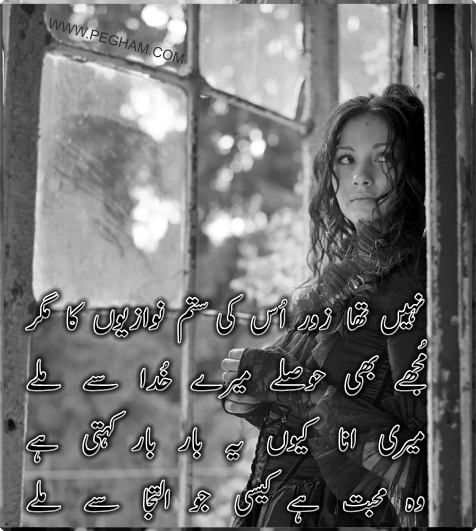 WWW.PEGHAM.COM
نہیں تھا زور اُس کی ستم نوازیوں کا مگر
مُجھے بھی حوصلے میرے خُدا سے ملے
میری انا کیوں یہ بار بار کہتی ہے
وہ محبت ہے کیسی جو التجا سے ملے